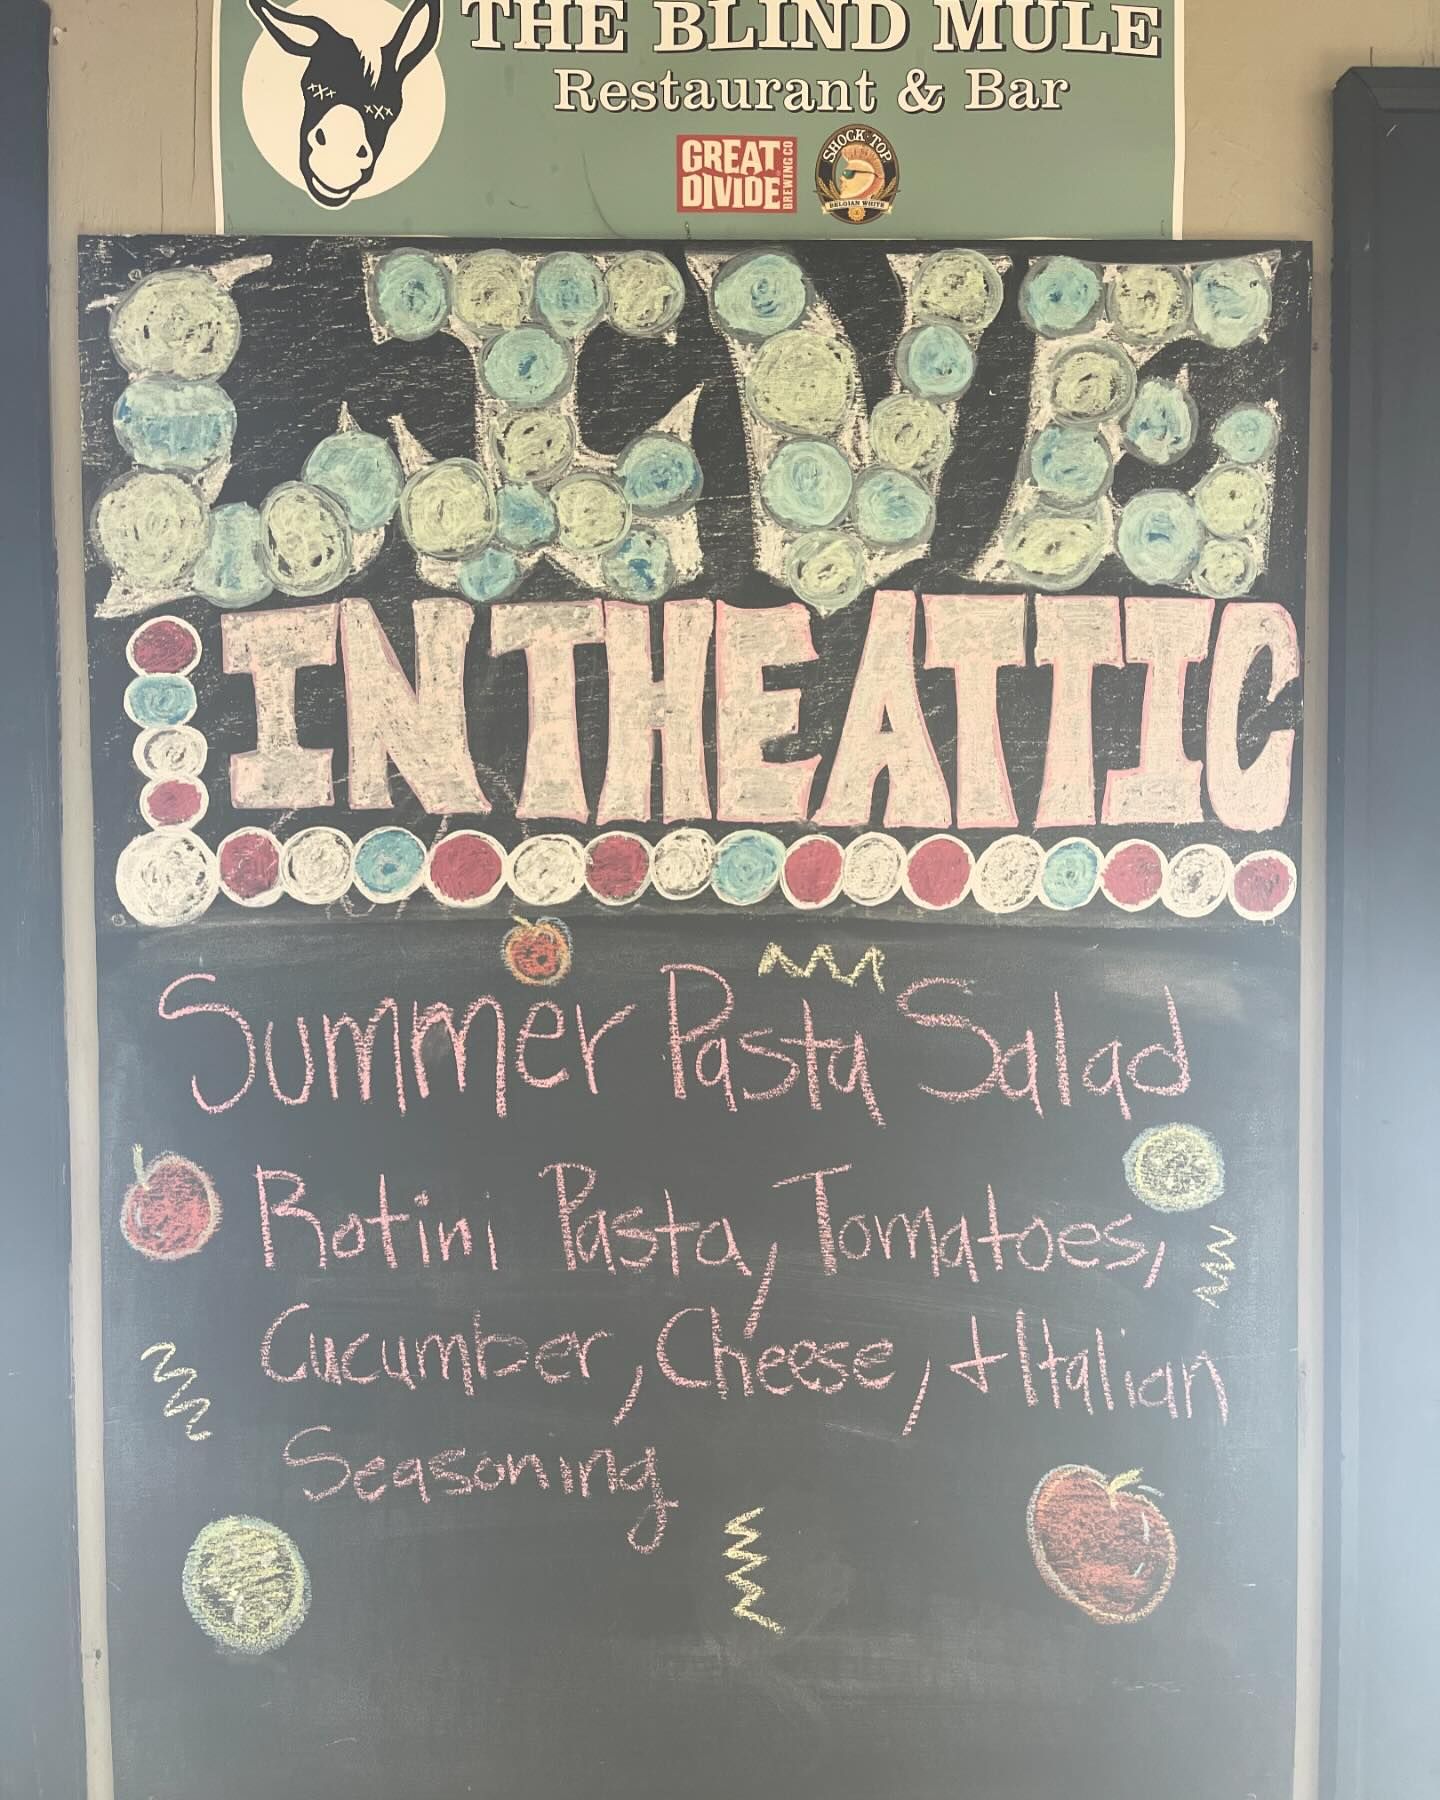 THE BLIND MULE
Restaurant & Bar
GREAT DIVIDE BREWING CO
SHOCK TOP
BELGIAN WHITE
LIVE
IN THE ATTIC
Summer Pasta Salad
Rotini Pasta, Tomatoes,
Cucumber, Cheese, + Italian
Seasoning